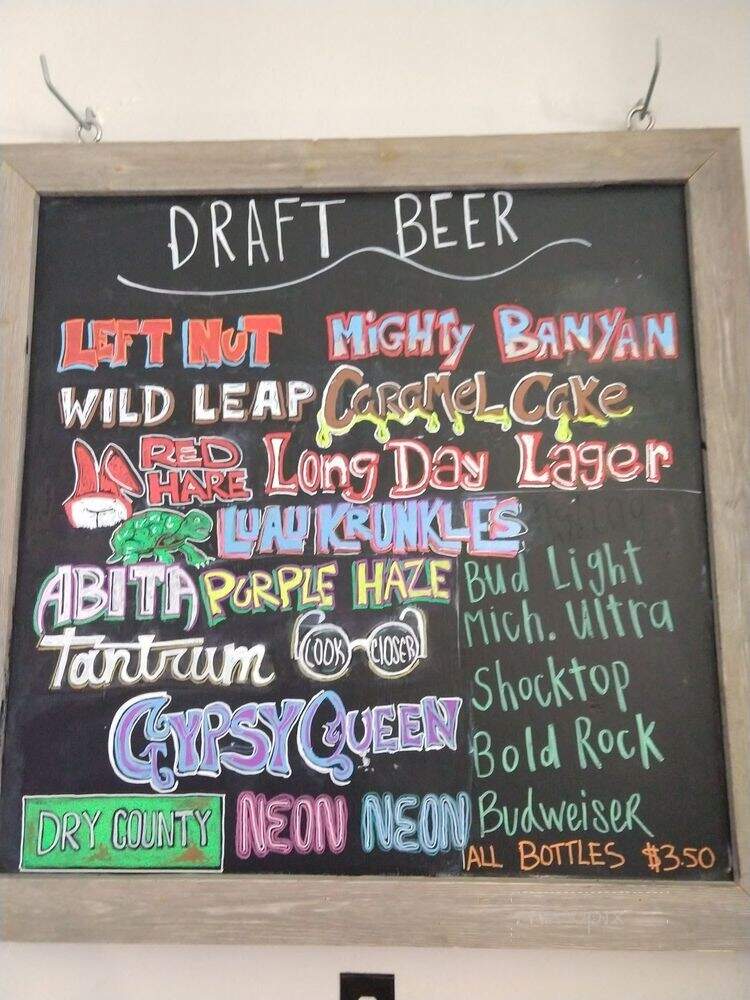 DRAFT BEER
LEFT NUT MiGHTy BANYAN
WILD LEAP CARAMEL CaKe
RED HARE Long Day Lager
LUAU KRUNKLES
ABITA PURPLE HAZE
Tantrum LOOK CLOSER
GYPSY QUEEN
DRY COUNTY NEON NEON
Bud Light
Mich. Ultra
Shocktop
Bold Rock
BudweiseR
ALL BOTTLES $3.50